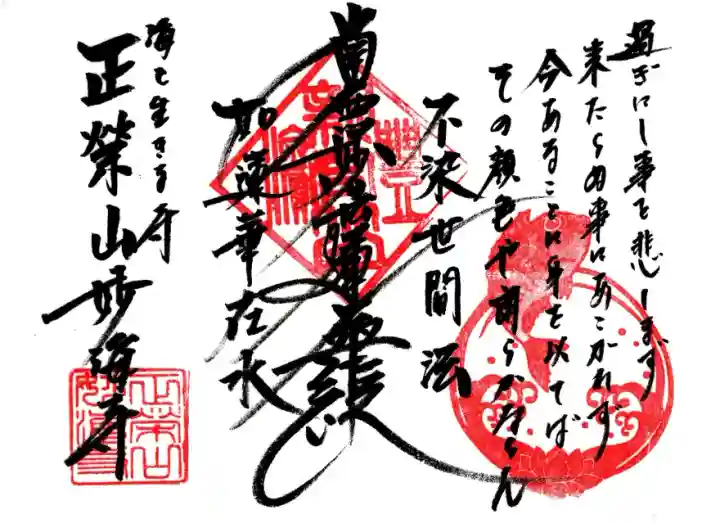 過ぎにし事を悲しまず
来たらぬ事にあこがれず
今あることに身を以てば
その顔色や朗らかならん
不染世間法
南無妙法蓮華経
如蓮華在水
海と生きる寺
正榮山妙海寺